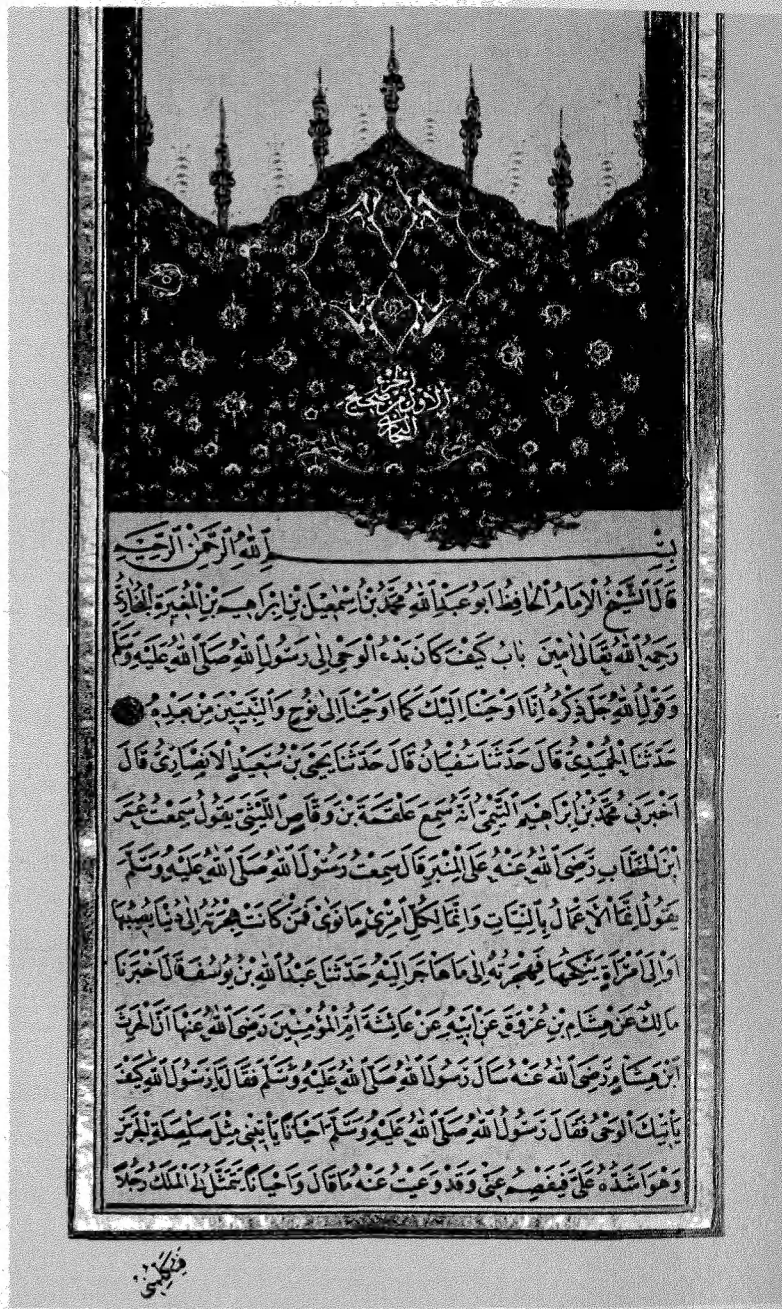 الجزء
الأول من صحيح
البخاري
بِسْمِ اللهِ الرَّحْمٰنِ الرَّحِيمِ
قَالَ الشَّيْخُ الْإِمَامُ الْحَافِظُ أَبُو عَبْدِ اللهِ مُحَمَّدُ بْنُ إِسْمٰعِيلَ بْنِ إِبْرَاهِيمَ بْنِ الْمُغِيرَةِ الْبُخَارِيُّ
رَحِمَهُ اللهُ تَعَالٰى اٰمِينَ بَابُ كَيْفَ كَانَ بَدْءُ الْوَحْيِ إِلٰى رَسُولِ اللهِ صَلَّى اللهُ عَلَيْهِ وَسَلَّمَ
وَقَوْلِ اللهِ جَلَّ ذِكْرُهُ إِنَّا أَوْحَيْنَا إِلَيْكَ كَمَا أَوْحَيْنَا إِلٰى نُوحٍ وَالنَّبِيِّينَ مِنْ بَعْدِهِ
حَدَّثَنَا الْحُمَيْدِيُّ قَالَ حَدَّثَنَا سُفْيَانُ قَالَ حَدَّثَنَا يَحْيَى بْنُ سَعِيدٍ الْأَنْصَارِيُّ قَالَ
أَخْبَرَنِي مُحَمَّدُ بْنُ إِبْرَاهِيمَ التَّيْمِيُّ أَنَّهُ سَمِعَ عَلْقَمَةَ بْنَ وَقَّاصٍ اللَّيْثِيَّ يَقُولُ سَمِعْتُ عُمَرَ
ابْنَ الْخَطَّابِ رَضِيَ اللهُ عَنْهُ عَلَى الْمِنْبَرِ قَالَ سَمِعْتُ رَسُولَ اللهِ صَلَّى اللهُ عَلَيْهِ وَسَلَّمَ
يَقُولُ إِنَّمَا الْأَعْمَالُ بِالنِّيَّاتِ وَإِنَّمَا لِكُلِّ امْرِئٍ مَا نَوٰى فَمَنْ كَانَتْ هِجْرَتُهُ إِلٰى دُنْيَا يُصِيبُهَا
أَوْ إِلَى امْرَأَةٍ يَنْكِحُهَا فَهِجْرَتُهُ إِلٰى مَا هَاجَرَ إِلَيْهِ حَدَّثَنَا عَبْدُ اللهِ بْنُ يُوسُفَ قَالَ أَخْبَرَنَا
مَالِكٌ عَنْ هِشَامِ بْنِ عُرْوَةَ عَنْ أَبِيهِ عَنْ عَائِشَةَ أُمِّ الْمُؤْمِنِينَ رَضِيَ اللهُ عَنْهَا أَنَّ الْحٰرِثَ
ابْنَ هِشَامٍ رَضِيَ اللهُ عَنْهُ سَأَلَ رَسُولَ اللهِ صَلَّى اللهُ عَلَيْهِ وَسَلَّمَ فَقَالَ يَا رَسُولَ اللهِ كَيْفَ
يَأْتِيكَ الْوَحْيُ فَقَالَ رَسُولُ اللهِ صَلَّى اللهُ عَلَيْهِ وَسَلَّمَ أَحْيَانًا يَأْتِينِي مِثْلَ سَلْسِلَةِ الْجَرَسِ
وَهُوَ أَشَدُّهُ عَلَيَّ فَيَفْصِمُ عَنِّي وَقَدْ وَعَيْتُ عَنْهُ مَا قَالَ وَأَحْيَانًا يَتَمَثَّلُ لِيَ الْمَلَكُ رَجُلًا
فَيُكَلِّمُنِي